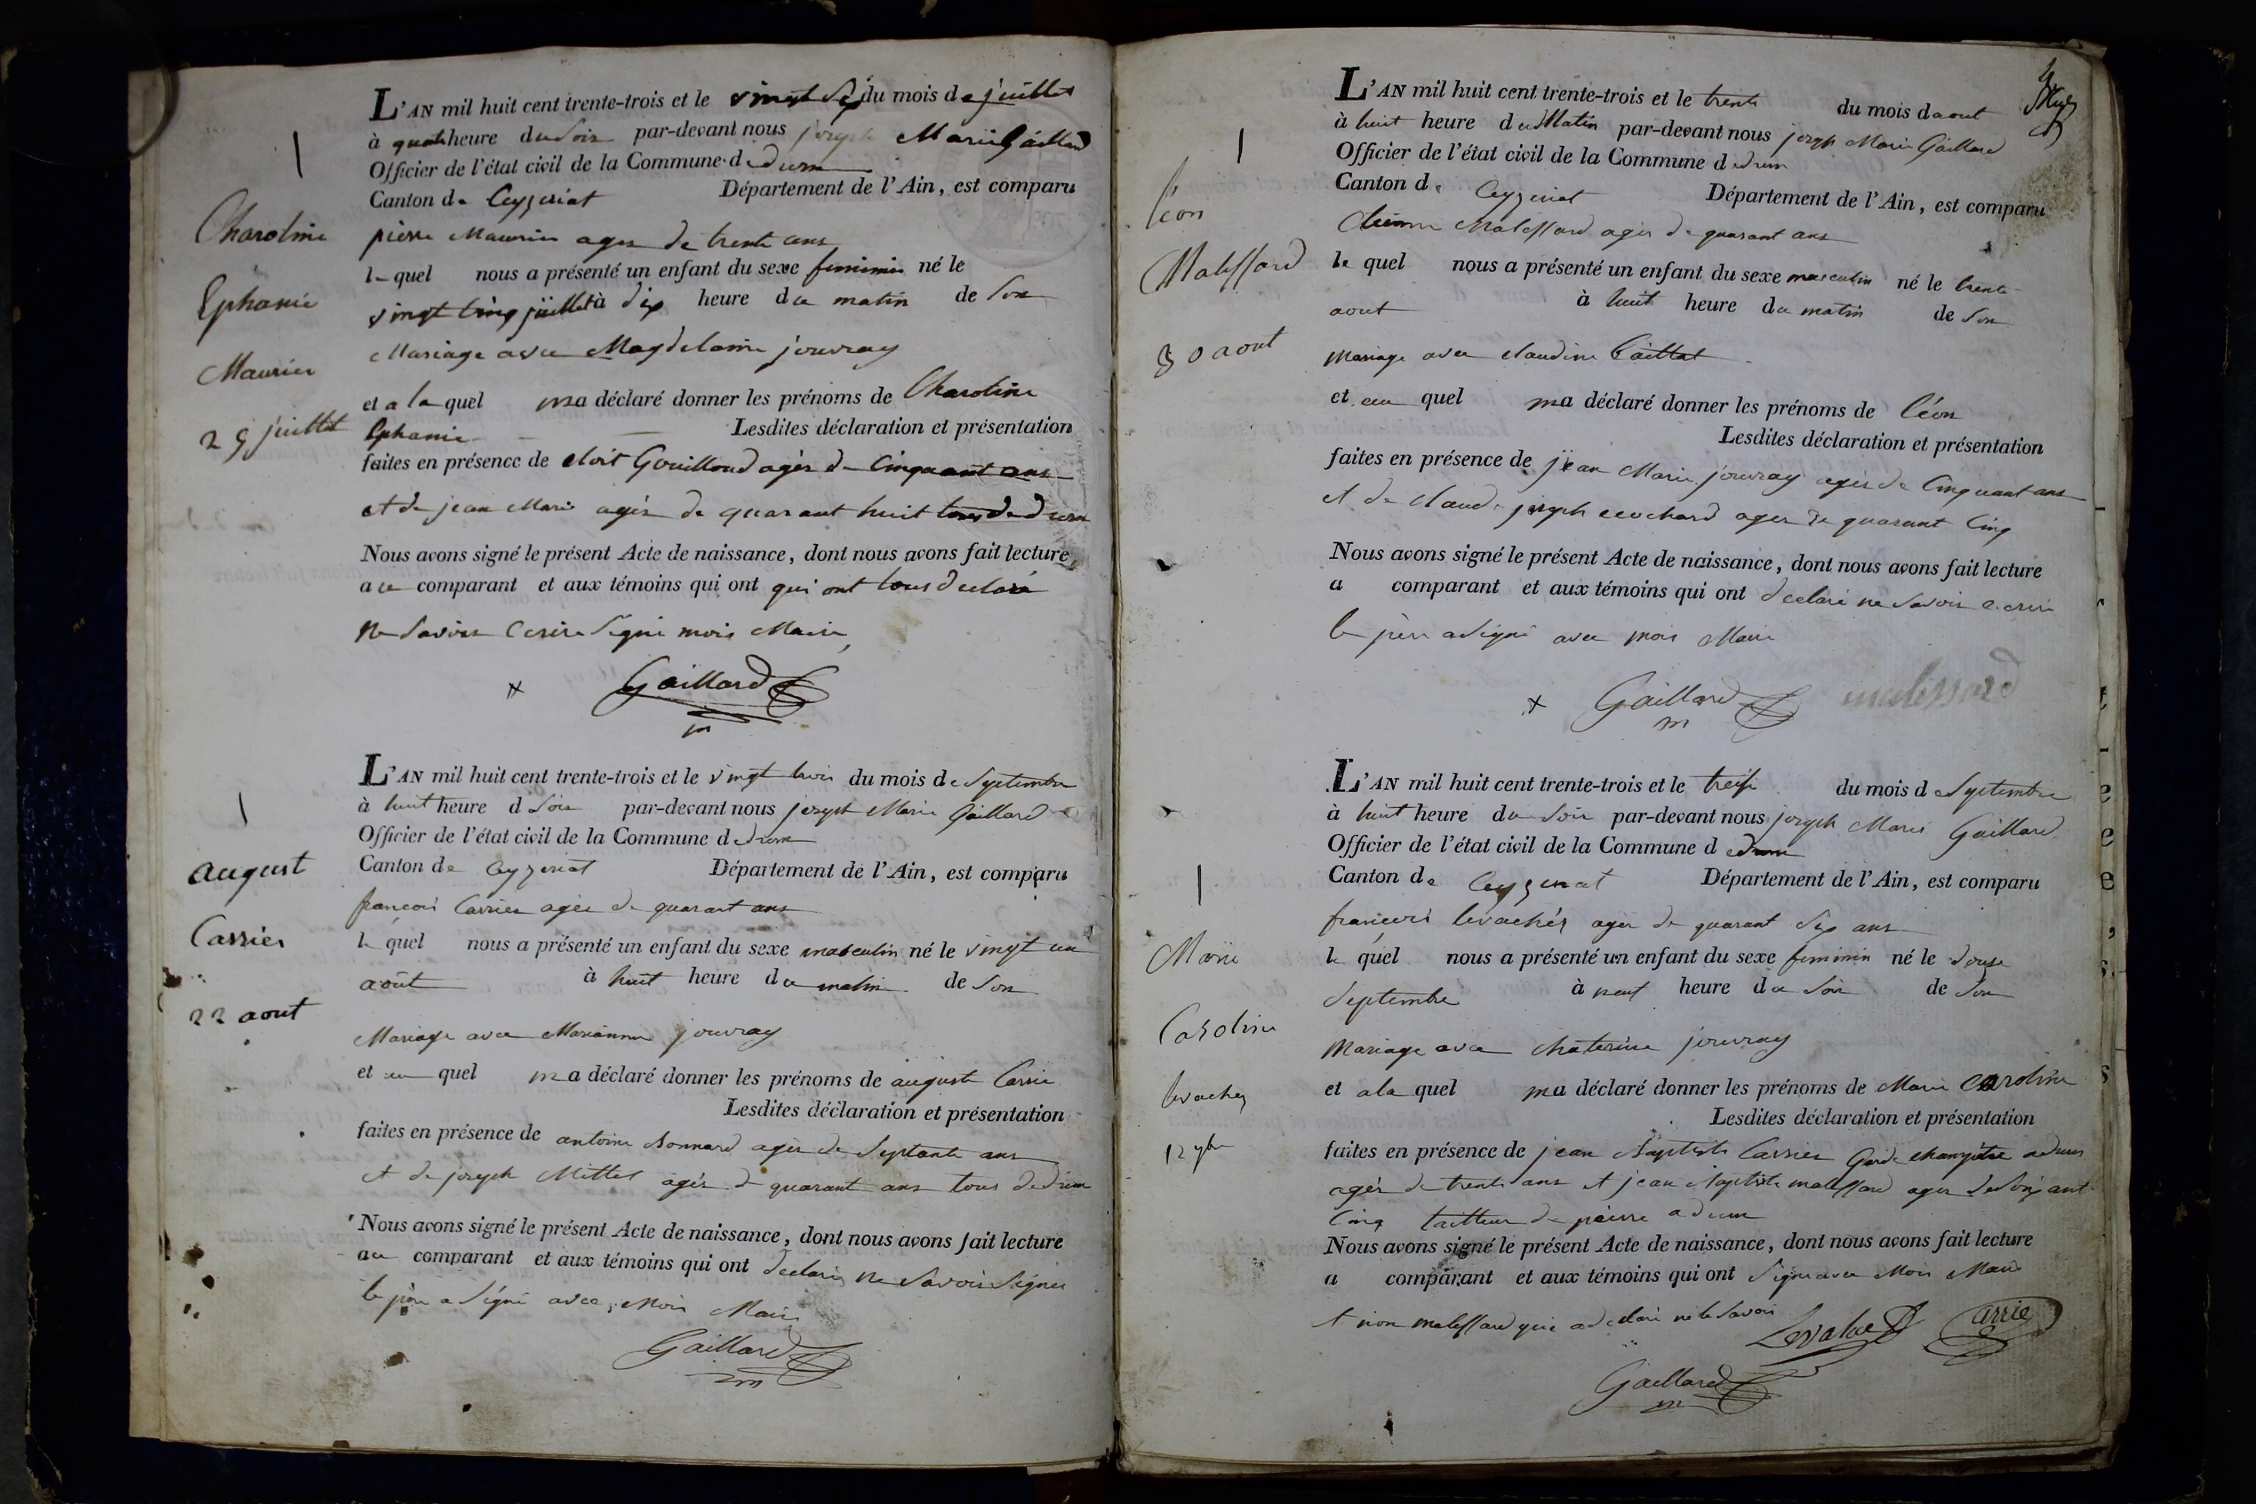 L'AN mil huit cent trente-trois et le vingt six du mois de juillet
à quatre heure du soir par-devant nous joseph Marie Gaillard
Officier de l'état civil de la Commune de drom
Canton de Ceyzeriat Département de l'Ain, est comparu
pierre Maurier ager de trente ans
le quel nous a présenté un enfant du sexe feminin né le
vingt cinq juillet à dix heure du matin de son
Mariage avec Magdelaine jouvray
et a la quel ma déclaré donner les prénoms de Charoline
Ephanie Lesdites déclaration et présentation
faites en présence de Gouilloud agér de Cinquant ans
et de jean Marie agér de quarant huit tous de drom
Nous avons signé le présent Acte de naissance, dont nous avons fait lecture
au comparant et aux témoins qui ont qui ont tous declaré
ne savoir Ecrire signé mois Maire
Gaillard
m
Charoline
Ephanie
Maurier
25 juillet
L'AN mil huit cent trente-trois et le vingt trois du mois de Septembre
à huit heure d soir par-devant nous joseph Marie Gaillard
Officier de l'état civil de la Commune de drom
Canton de Ceyzeriat Département de l'Ain, est comparu
francois Carrier agér de quarant ans
le quel nous a présenté un enfant du sexe masculin né le vingt un
août à huit heure du matin de son
Mariage avec Marianne jouvray
et au quel ma déclaré donner les prénoms de auguste Carrie
Lesdites déclaration et présentation
faites en présence de antoine Bonnard agér de Septante ans
et de joseph Mittet agér de quarant ans tous de drom
Nous avons signé le présent Acte de naissance, dont nous avons fait lecture
au comparant et aux témoins qui ont declaré ne savoir signer
le père a signé avec Mois Maire
Gaillard
m
august
Carrier
22 aout
L'AN mil huit cent trente-trois et le trente du mois d aout
à huit heure du Matin par-devant nous joseph Marie Gaillard
Officier de l'état civil de la Commune de drom
Canton de Ceyzeriat Département de l'Ain, est comparu
Malessard agér de quarant ans
le quel nous a présenté un enfant du sexe masculin né le trente
aout à huit heure du matin de son
Mariage avec claudine Caillat
et au quel ma déclaré donner les prénoms de Léon
Lesdites déclaration et présentation
faites en présence de jean Marie jouvray agér de Cinquant ans
et de claude joseph ecochard ager de quarant Cinq
Nous avons signé le présent Acte de naissance, dont nous avons fait lecture
a comparant et aux témoins qui ont declaré ne savoir ecrire
le père a signé avec mois Maire
Gaillard malessard
m
Léon
Malessard
30 aout
L'AN mil huit cent trente-trois et le treise du mois de Septembre
à huit heure du Soir par-devant nous joseph Marie Gaillard
Officier de l'état civil de la Commune de drom
Canton de Ceyzeriat Département de l'Ain, est comparu
françois levachér agér de quarant Six ans
le quel nous a présenté un enfant du sexe feminin né le douse
Septembre à neuf heure du Soir de Son
Mariage avec chaterine jouvray
et a la quel ma déclaré donner les prénoms de Marie Caroline
Lesdites déclaration et présentation
faites en présence de jean Baptiste Carrier Garde champètre a drom
agér de trente ans et jean Baptiste malessard agér de Soixant
Cinq tailleur de pierre a drom
Nous avons signé le présent Acte de naissance, dont nous avons fait lecture
a comparant et aux témoins qui ont signé avec Mois Maire
et non malessard qui a declaré ne le Savoir
Carrie
Gaillard
m
Marie
Caroline
levacher
12 7bre